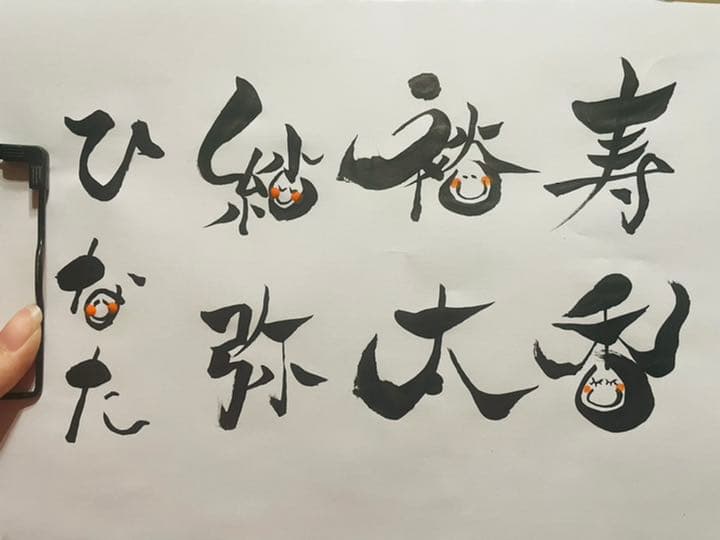 寿香
裕太
紗弥
ひなた